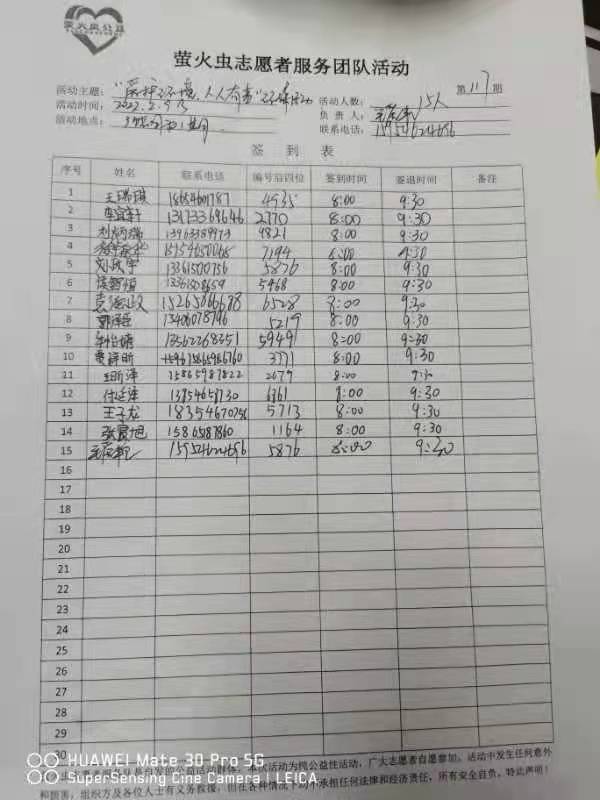 萤火虫公益
萤火虫志愿者服务团队活动
第117期
活动主题：环境，人人有责
活动人数：15人
活动时间：2022.2.
负责人：
活动地点：
联系电话：15954624696
签到表
序号 姓名 联系电话 编号后四位 签到时间 签退时间 备注
1 王瑞琪 18654601787 4935 8:00 9:30
2 13173369646 2770 8:00 9:30
3 13963389973 9821 8:00 9:30
4 15154650068 7194 8:00 9:30
5 13361500756 5876 8:00 9:30
6 5468 8:00 9:30
7 6528 8:00 9:30
8 13406078796 5219 8:00 9:30
9 13562268351 5949 8:00 9:30
10 3771 8:00 9:30
11 15865987822 2679 8:00 9:30
12 13754658730 6361 8:00 9:30
13 王子龙 18354670756 5713 8:00 9:30
14 张晨旭 15865887860 1164 8:00 9:30
15 15954624696 5876 8:00 9:30
16
17
18
19
20
21
22
23
24
25
26
27
28
29
30
本次活动为纯公益性活动，广大志愿者自愿参加。活动中发生任何意外
和损害，组织方及各位人士有义务救援，但在各种情况下均不承担任何法律和经济责任，所有安全自负，特此声明！
HUAWEI Mate 30 Pro 5G
SuperSensing Cine Camera | LEICA